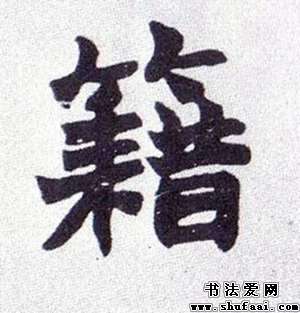 籍
书法爱网
www.shufaai.com